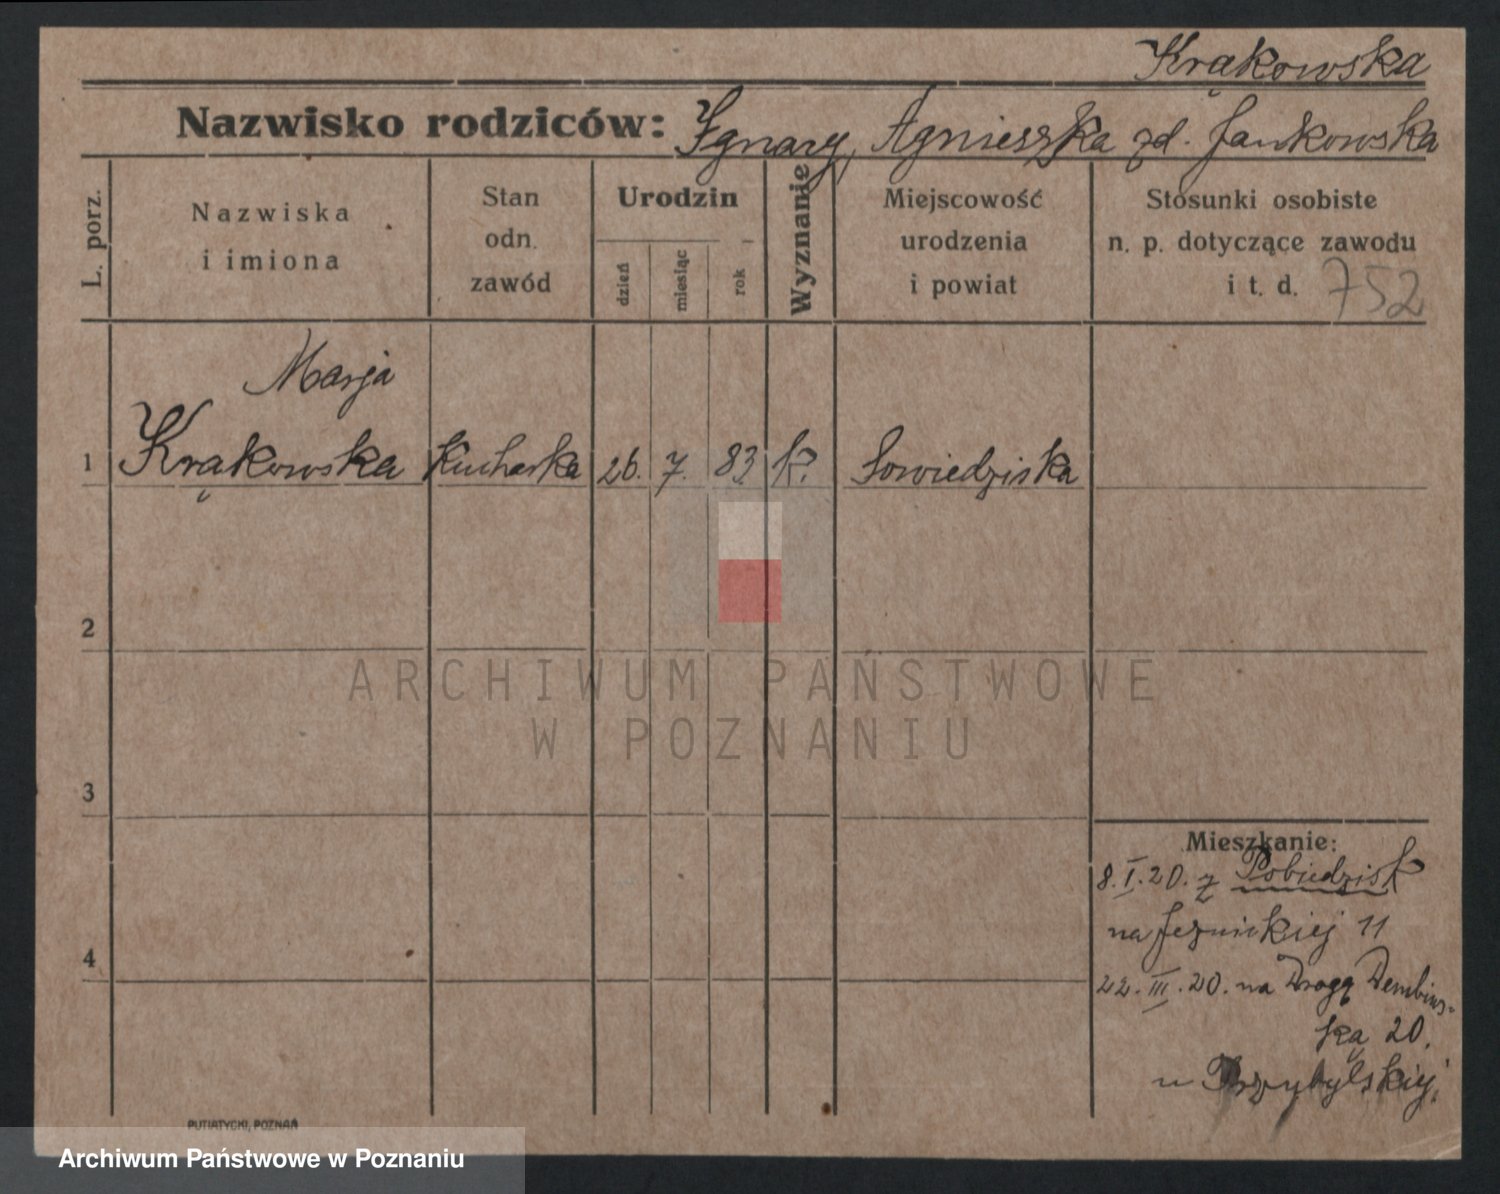 Krąkowska
Nazwisko rodziców: Ignacy, Agnieszka zd. Jankowska
L. porz.
Nazwiska
i imiona
Stan
odn.
zawód
Urodzin
dzień
miesiąc
rok
Wyznanie
Miejscowość
urodzenia
i powiat
Stosunki osobiste
n. p. dotyczące zawodu
i t. d. 752
Marja
1 Krąkowska Kucharka 26. 7. 83. k. Sowiedziska
2
3
4
Mieszkanie:
8.I.20. z Pobiedzisk
na Jezuickiej 11
22.III.20. na Drogą Dembins-
ką 20.
u Przybylskiej.
PUTIATYCKI, POZNAŃ
ARCHIWUM PAŃSTWOWE
W POZNANIU
Archiwum Państwowe w Poznaniu